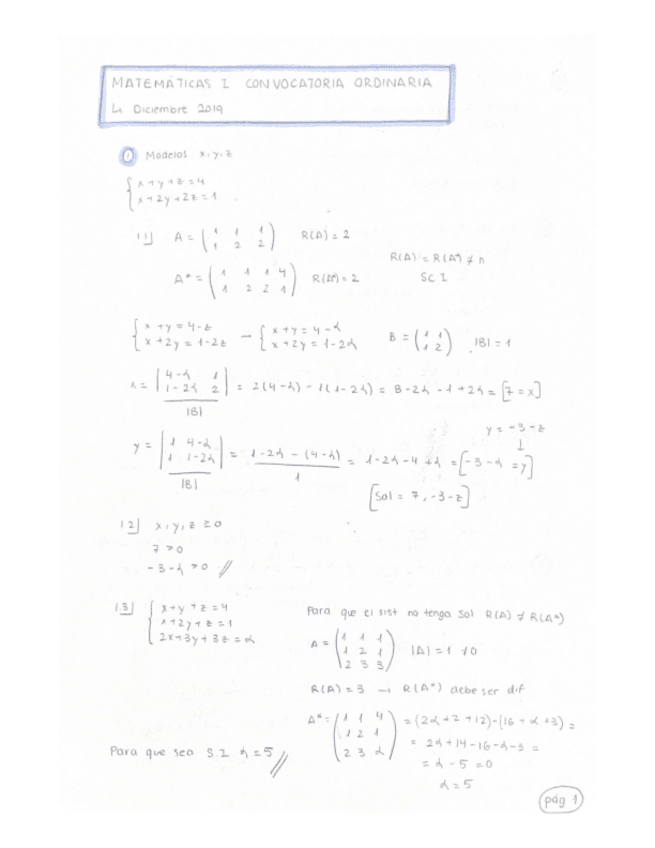 MATEMÁTICAS I CONVOCATORIA ORDINARIA
4 Diciembre 2019
① Modelos x, y, z
{ x + y + z = 4
x + 2y + 2z = 1
1.1] A = ( 1 1 1
1 2 2 ) R(A) = 2
R(A) = R(A*) ≠ n
A* = ( 1 1 1 4
1 2 2 1 ) R(A*) = 2
SC I
{ x + y = 4 - z
x + 2y = 1 - 2z
→ { x + y = 4 - λ
x + 2y = 1 - 2λ
B = ( 1 1
1 2 ) |B| = 1
x = | 4-λ 1
1-2λ 2 | / |B| = 2(4-λ) - 1(1-2λ) = 8 - 2λ - 1 + 2λ = [7 = x]
y = -3 - z
↓
y = | 1 4-λ
1 1-2λ | / |B| = 1-2λ - (4-λ) / 1 = 1-2λ-4+λ = [-3-λ = y]
[Sol = 7, -3-z]
1.2] x, y, z ≥ 0
7 > 0
-3-λ > 0 //
1.3] { x + y + z = 4
x + 2y + z = 1
2x + 3y + 3z = α
Para que el sist no tenga sol R(A) ≠ R(A*)
A = ( 1 1 1
1 2 1
2 3 3 ) |A| = 1 ≠ 0
R(A) = 3 → R(A*) debe ser dif
A* = ( 1 1 4
1 2 1
2 3 α ) = (2α + 2 + 12) - (16 + α + 3) =
= 2α + 14 - 16 - α - 3 =
= α - 5 = 0
α = 5
Para que sea S.I α = 5 //
pág 1